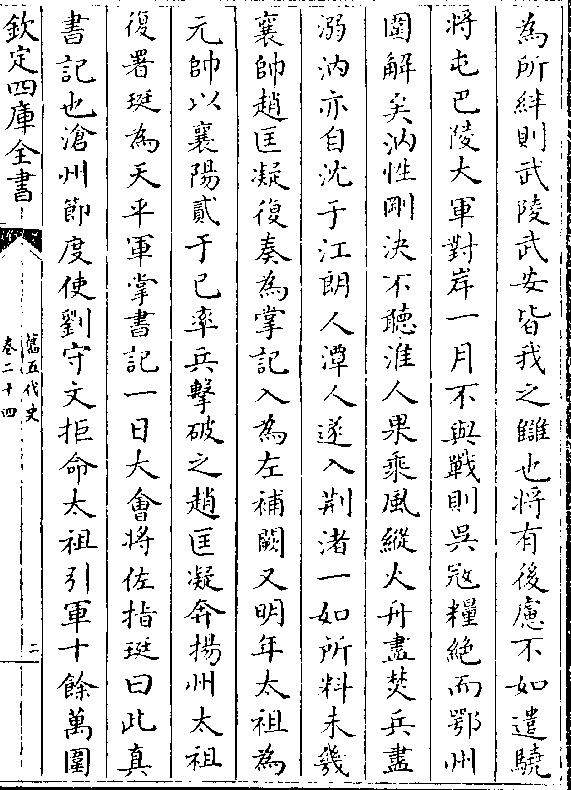 為所絆則武陵武安皆我之讎也將有後慮不如遣驍
將屯巴陵大軍對岸一月不與戰則吳寇糧絶而鄂州
圍解矣汭性剛決不聽淮人果乘風縱火舟盡焚兵盡
溺汭亦自沈于江朗人潭人遂入荆渚一如所料未幾
襄帥趙匡凝復奏為掌記入為左補闕又明年太祖為
元帥以襄陽貳于已率兵擊破之趙匡凝奔揚州太祖
復署珽為天平軍掌書記一日大㑹將佐指珽曰此真
書記也滄州節度使劉守文拒命太祖引軍十餘萬圍
欽定四庫全書
舊五代史
卷二十四
二